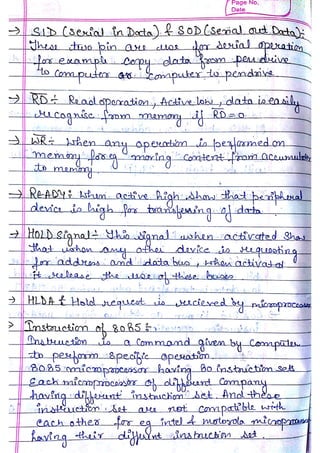 Page No.
Date
→ SID (Serial in Data) & SOD (Serial out Data):-
These two pin are use for serial operation
for example copy data from pendrive
to computer or computer to pendrive
→ RD :- Read operation, Active low, data is easily
recognise from memory if RD = 0
→ WR :- When any operation is performed on
memory for eg moving content from accumulator
to memory.
→ READY: When active high show that peripheral
device is high for transfering of data
→ HOLD Signal:- This signal when activated Show
that when any other device is requesting
for address and data bus, when activated
it release the use of these buses
→ HLDA & Hold request is recieved by microprocessor
> Instruction of 8085 :-
Instruction is a command given by Computer
to perform specific operation
8085 microprocessor having 80 instruction sets
Each microprocessor of different Company
having different instruction set. And these
instruction set are not compatible with
each other for eg intel & motorola microprocessor
having their different instruction set.